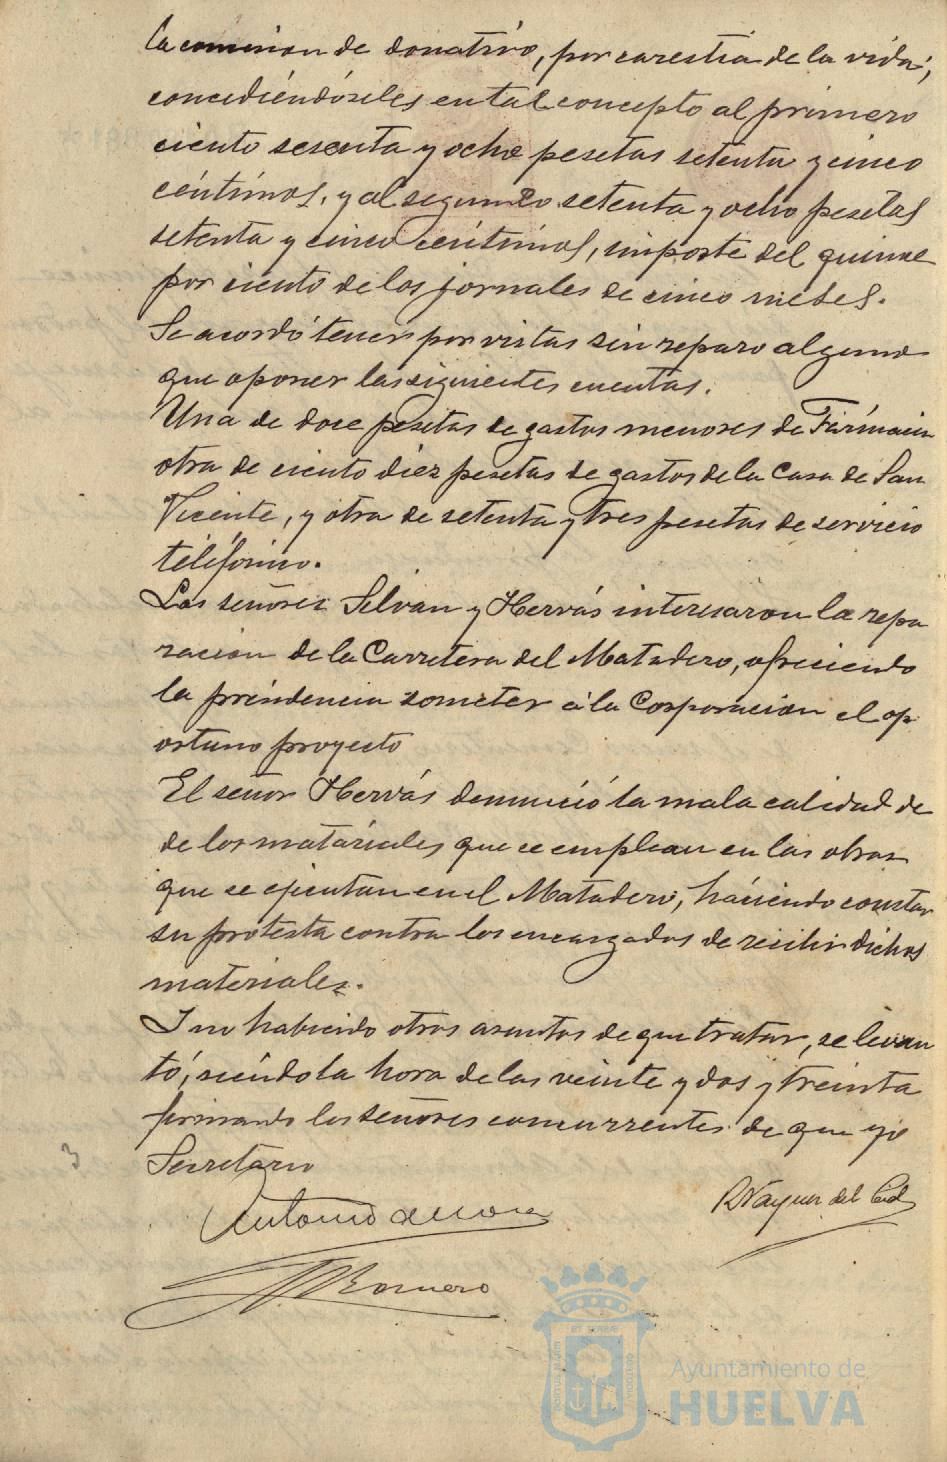 la comision de donativo, por carestia de la vida,
concediéndoseles en tal concepto al primero
ciento sesenta y ocho pesetas setenta y cinco
céntimos, y al segundo setenta y ocho pesetas
setenta y cinco céntimos, importe del quince
por ciento de los jornales de cinco meses.
Se acordó tener por vistas sin reparo alguno
que oponer las siguientes cuentas.
Una de doce pesetas de gastos menores de
otra de ciento diez pesetas de gastos de la Casa de San
Vicente, y otra de setenta y tres pesetas de servicio
teléfonico.
Los señores Selvan y Hervás interesaron la repa
racion de la Carretera del Matadero, ofreciendo
la presidencia someter á la Corporacion el op
ortuno proyecto
El señor Hervás denunció la mala calidad de
de los materiales que se emplean en las obras
que se ejecutan en el Matadero, haciendo constar
su protesta contra los encargados de recibir dichos
materiales.
Y no habiendo otros asuntos de que tratar, se levan
tó, siendo la hora de las veinte y dos y treinta
firmando los señores concurrentes de que yo
Secretario
Antonio de Mora
del Cid
Romero
PORTUS MARIS
ET TERRAE
CUSTODIA
Ayuntamiento de
HUELVA
3